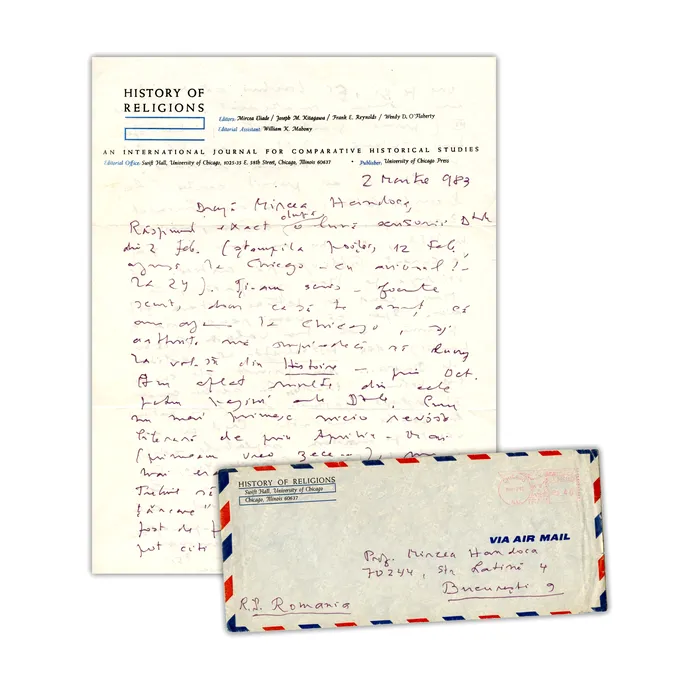 HISTORY OF
RELIGIONS
Editors: Mircea Eliade / Joseph M. Kitagawa / Frank E. Reynolds / Wendy D. O'Flaherty
Editorial Assistant: William K. Mahony
AN INTERNATIONAL JOURNAL FOR COMPARATIVE HISTORICAL STUDIES
Editorial Office: Swift Hall, University of Chicago, 1025-35 E. 58th Street, Chicago, Illinois 60637 • Publisher: University of Chicago Press
2 Martie 983
Dragă Mircea Handoca,
după
Răspund exact o lună scrisorii Dtale
din 2 Feb. (ștampila poștei, 12 Feb,
ajuns la Chicago – cu avionul! –
la 24). Ți-am scris – foarte
scurt, doar ca să te anunț că
am ajuns la Chicago, și
artrita mă împiedică să lucrez
la vol. din Histoire – prin Oct.
Am aflat multe din cele
patru pagini ale Dtale. Cum
nu mai primesc nicio revistă
literară de prin Aprilie – Mai
(primeam vreo zece
mai
Trebuie
fost de
pot citi
HISTORY OF RELIGIONS
Swift Hall, University of Chicago
Chicago, Illinois 60637
VIA AIR MAIL
Prof. Mircea Handoca
70244, Str. Latină 4
București 9
R.S. Romania